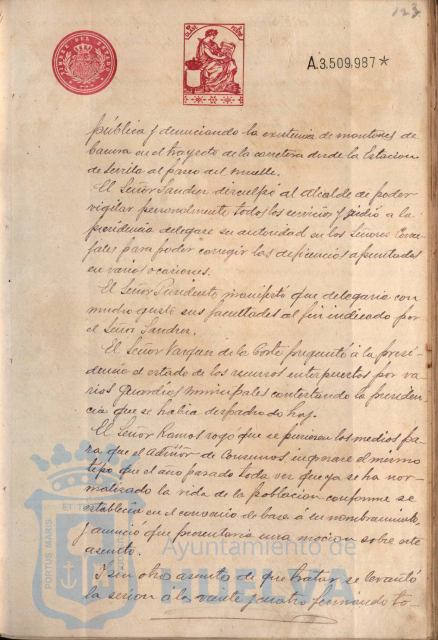 123
TIMBRE DEL ESTADO
A.3.509,987*
pública y denunciando la existencia de montones de
basura en el trayecto de la carretera desde la Estación
de Sevilla al paseo del muelle.
El Señor Sanchez disculpó al Alcalde de poder
vigilar personalmente todos los servicios y pidió a la
presidencia delegase su autoridad en los Señores Conce-
jales para poder corregir las deficiencias apuntadas
en varias ocasiones.
El Señor Presidente manifestó que delegaria con
mucho gusto sus facultades al fin indicado por
el Señor Sanchez.
El Señor Vazquez de la Corte preguntó á la presi-
dencia el estado de los recursos interpuestos por va-
rios guardias municipales contestando la presiden-
cia que se habia despachado hoy.
El Señor Ramos rogó que se pusieran los medios pa-
ra que el Admor de Consumos ingresare el mismo
tipo que el año pasado toda vez que ya se ha nor-
malizado la vida de la población conforme se
establecia en el convenio de base á su nombramiento,
y anunció que presentaria una mocion sobre este
asunto.
Y sin otro asunto de que tratar se levantó
la sesión á las veinte y cuatro firmando to-
PORTUS MARIS
ET TE
Ayuntamiento de
HUELVA